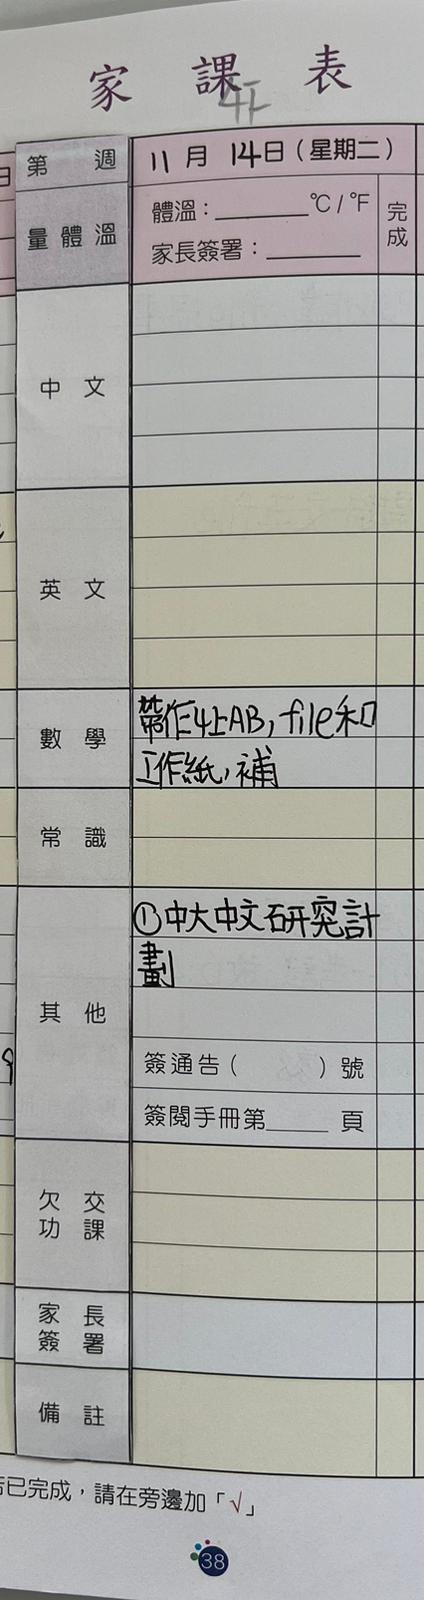 家 課 表
第 週
11 月 14 日 ( 星期二 )
量 體 溫
體溫：______°C / °F
家長簽署：______
完成
中 文
英 文
數 學
帶作4上AB, file和
工作紙, 補
常 識
其 他
①中大中文研究計
劃
簽通告（ ）號
簽閱手冊第____頁
欠 交
功 課
家 長
簽 署
備 註
已完成，請在旁邊加「√」
38